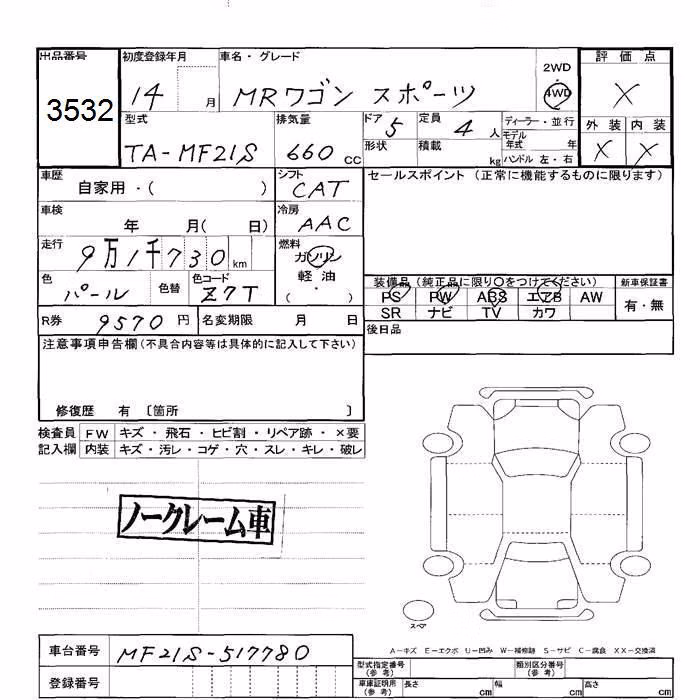 出品番号 初度登録年月 車名・グレード 2WD 評価点
3532 14 月 MRワゴン スポーツ 4WD X
型式 排気量 ドア 5 定員 4 人 ディーラー・並行 外装 内装
TA-MF21S 660 cc 形状 積載 kg モデル年式 年 X X
ハンドル 左・右
車歴 自家用・( ) シフト CAT セールスポイント (正常に機能するものに限ります)
車検 年 月( 日) 冷房 AAC
走行 9万1千730 km 燃料 ガソリン
軽油・
( )
色 パール 色替 色コード Z7T 装備品 (純正品に限り○をつけてください) 新車保証書
PS PW ABS エアB AW 有・無
R券 9570 円 名変期限 月 日 SR ナビ TV カワ
後日品
注意事項申告欄(不具合内容等は具体的に記入して下さい)
修復歴 有 〔箇所 〕
検査員 FW キズ・飛石・ヒビ割・リペア跡・×要
記入欄 内装 キズ・汚レ・コゲ・穴・スレ・キレ・破レ
ノークレーム車
スペア
A-キズ E-エクボ U-凹み W-補修跡 S-サビ C-腐食 XX-交換済
車台番号 MF21S-517780 型式指定番号(参考) 類別区分番号(参考)
登録番号 車庫証明用(参考) 長さ cm 幅 cm 高さ cm